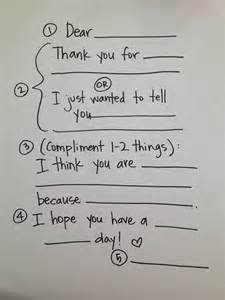 ① Dear
Thank you for
②
OR
I just wanted to tell
you
③ (Compliment 1-2 things):
I think you are
because
④ I hope you have a
day! ♡
⑤